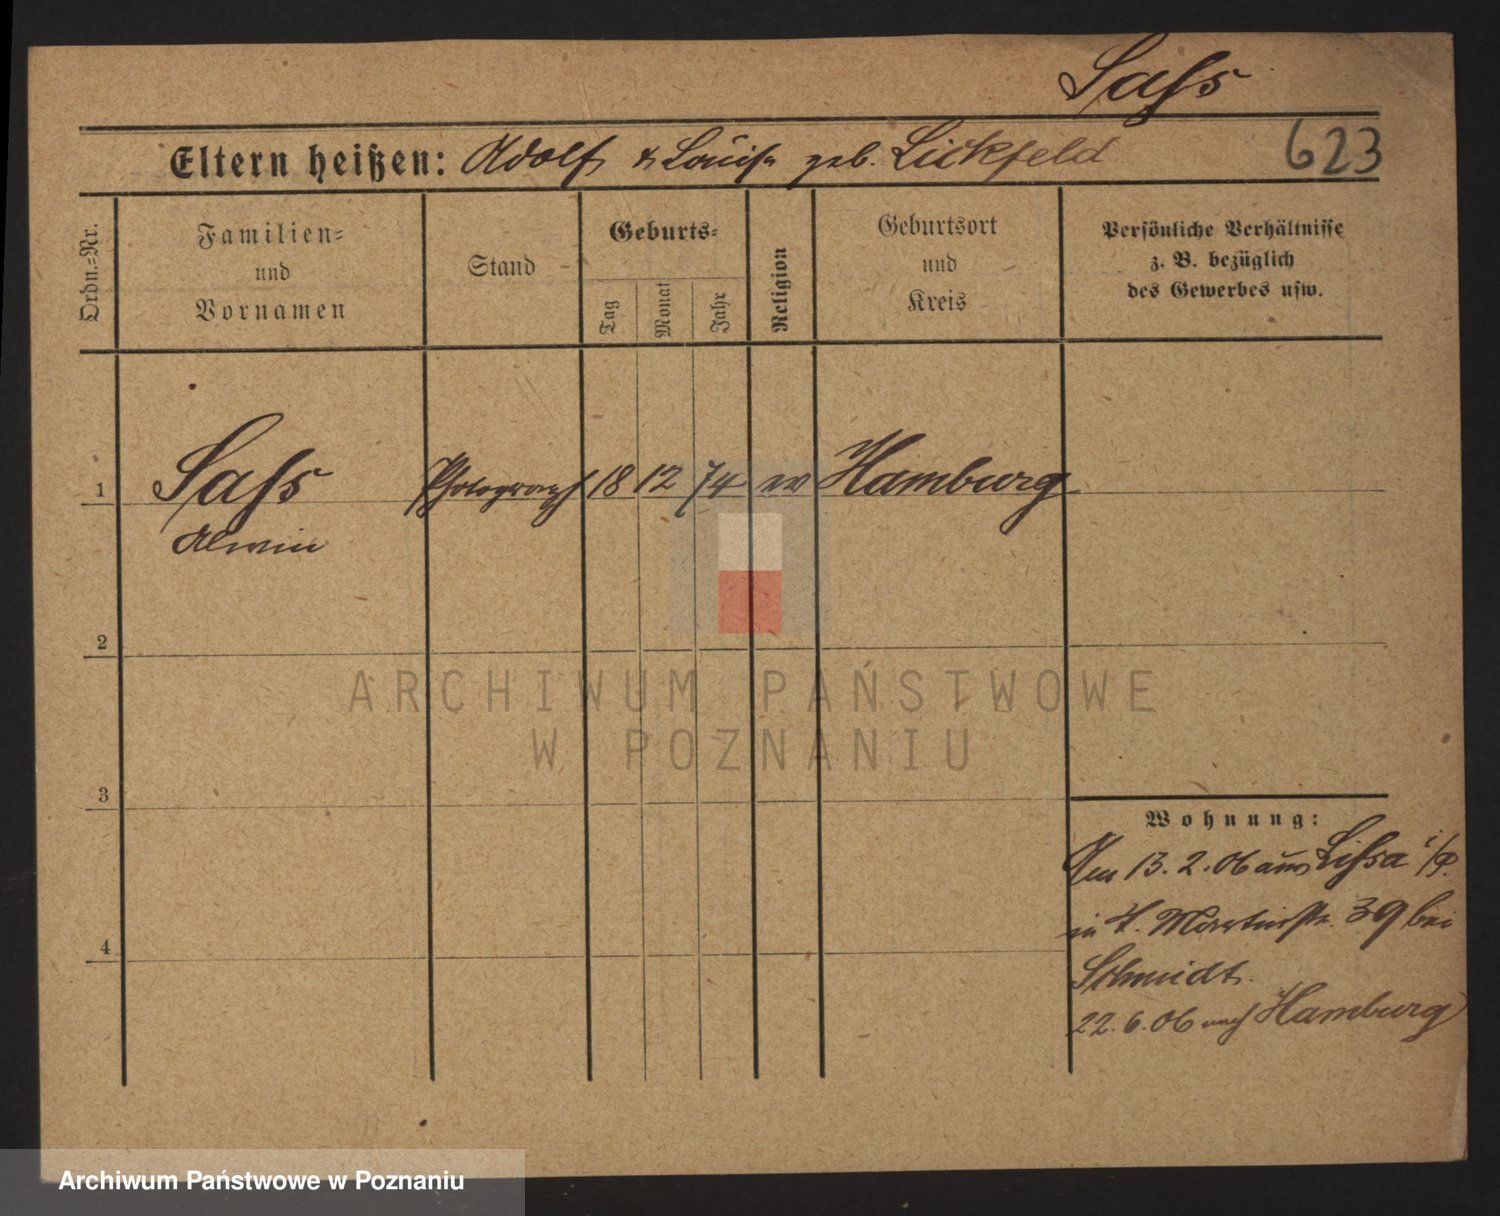 Sass
Eltern heißen: Adolf & Louise geb. Lickfeld
623
Ordn.-Nr.
Familien-
und
Vornamen
Stand
Geburts-
Tag
Monat
Jahr
Religion
Geburtsort
und
Kreis
Persönliche Verhältnisse
z. B. bezüglich
des Gewerbes usw.
1 Sass Photograph 18 12 74 ev Hamburg
Alwin
2
3
4
Wohnung:
Am 13.2.06 aus Lissa i/P.
in St. Martinstr. 39 bei
Schmidt.
22.6.06 nach Hamburg
ARCHIWUM PAŃSTWOWE
W POZNANIU
Archiwum Państwowe w Poznaniu